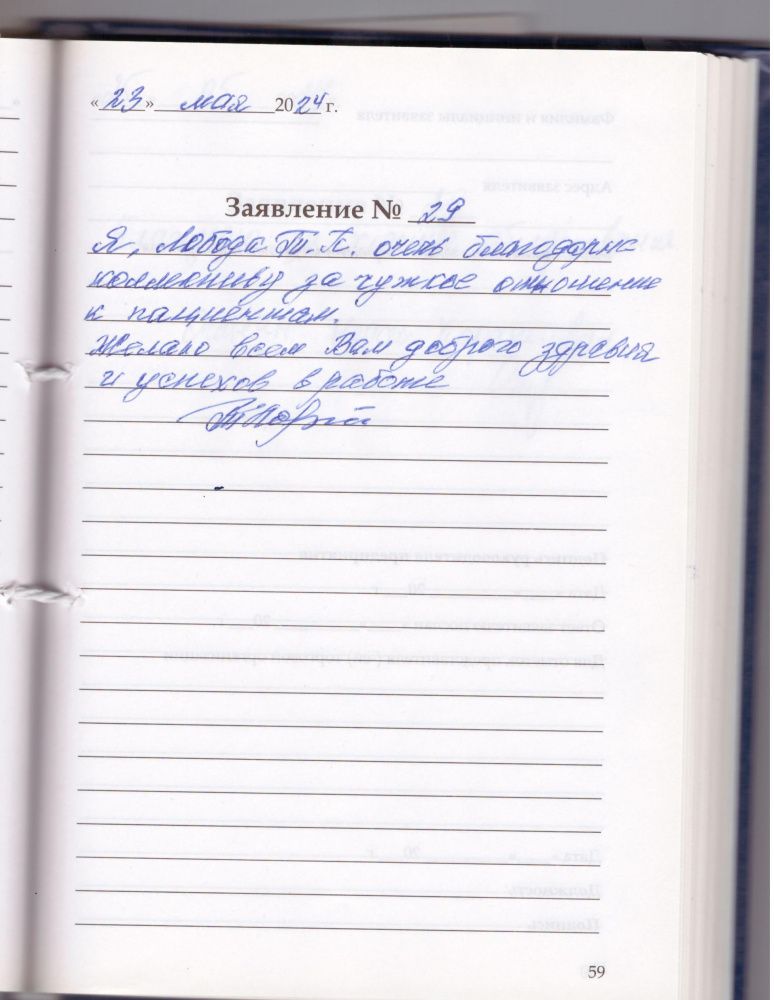 «23» мая 2024 г.
Заявление № 29
Я, Лобода Т. П. очень благодарна
коллективу за чужкое отношение
к пациентам.
Желаю всем Вам доброго здравия
и успехов в работе
59